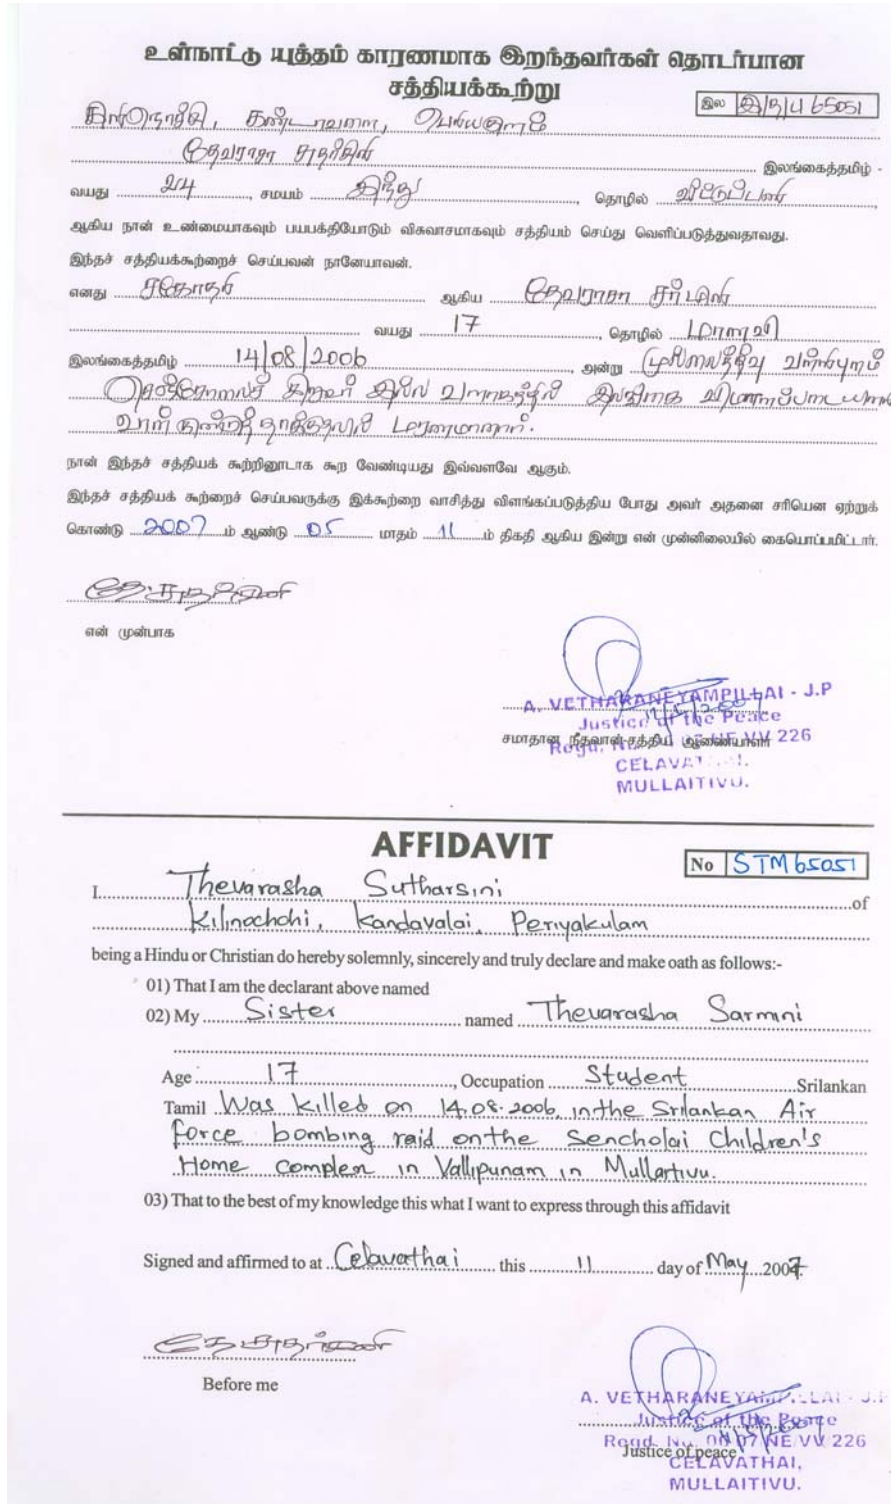 உள்நாட்டு யுத்தம் காரணமாக இறந்தவர்கள் தொடர்பான
சத்தியக்கூற்று
இல இ/த/பு 65051
கிளிநொச்சி, கண்டாவளை, பெரியகுளம்
தேவராசா சுதர்சினி இலங்கைத்தமிழ் -
வயது 24, சமயம் இந்து, தொழில் வீட்டுப்பணி,
ஆகிய நான் உண்மையாகவும் பயபக்தியோடும் விசுவாசமாகவும் சத்தியம் செய்து வெளிப்படுத்துவதாவது.
இந்தச் சத்தியக்கூற்றைச் செய்பவன் நானேயாவன்.
எனது சகோதரி ஆகிய தேவராசா சர்மினி
வயது 17, தொழில் மாணவி
இலங்கைத்தமிழ் 14/08/2006, அன்று முல்லைத்தீவு வள்ளிபுனம்
செஞ்சோலைச் சிறுவர் இல்ல வளாகத்தில் இலங்கை விமானப்படையின்
வான் குண்டுத் தாக்குதலில் மரணமானார்.
நான் இந்தச் சத்தியக் கூற்றினூடாக கூற வேண்டியது இவ்வளவே ஆகும்.
இந்தச் சத்தியக் கூற்றைச் செய்பவருக்கு இக்கூற்றை வாசித்து விளங்கப்படுத்திய போது அவர் அதனை சரியென ஏற்றுக்
கொண்டு 2007 ம் ஆண்டு 05 மாதம் 11 ம் திகதி ஆகிய இன்று என் முன்னிலையில் கையொப்பமிட்டார்.
தே.சுதர்சினி
என் முன்பாக
A. VETHARANEYAMPILLAI - J.P
Justice of the Peace
சமாதான நீதவான்-சத்திய ஆணையாளர்
226
CELAVATHAI,
MULLAITIVU.
AFFIDAVIT
No STM 65051
I Thevarasha Sutharsini of
Kilinochchi, Kandavalai, Periyakulam
being a Hindu or Christian do hereby solemnly, sincerely and truly declare and make oath as follows:-
01) That I am the declarant above named
02) My Sister named Thevarasha Sarmini
Age 17, Occupation Student Srilankan
Tamil Was killed on 14.08.2006, in the Srilankan Air
force bombing raid on the Sencholai Children's
Home complex in Vallipunam in Mullartivu.
03) That to the best of my knowledge this what I want to express through this affidavit
Signed and affirmed to at Celavathai this 11 day of May 2007.
தே.சுதர்சினி
Before me
A. VETHARANEYAMPILLAI - J.P
Justice of the Peace
Regd. No. 06 07 NE/VV 226
Justice of peace
CELAVATHAI,
MULLAITIVU.